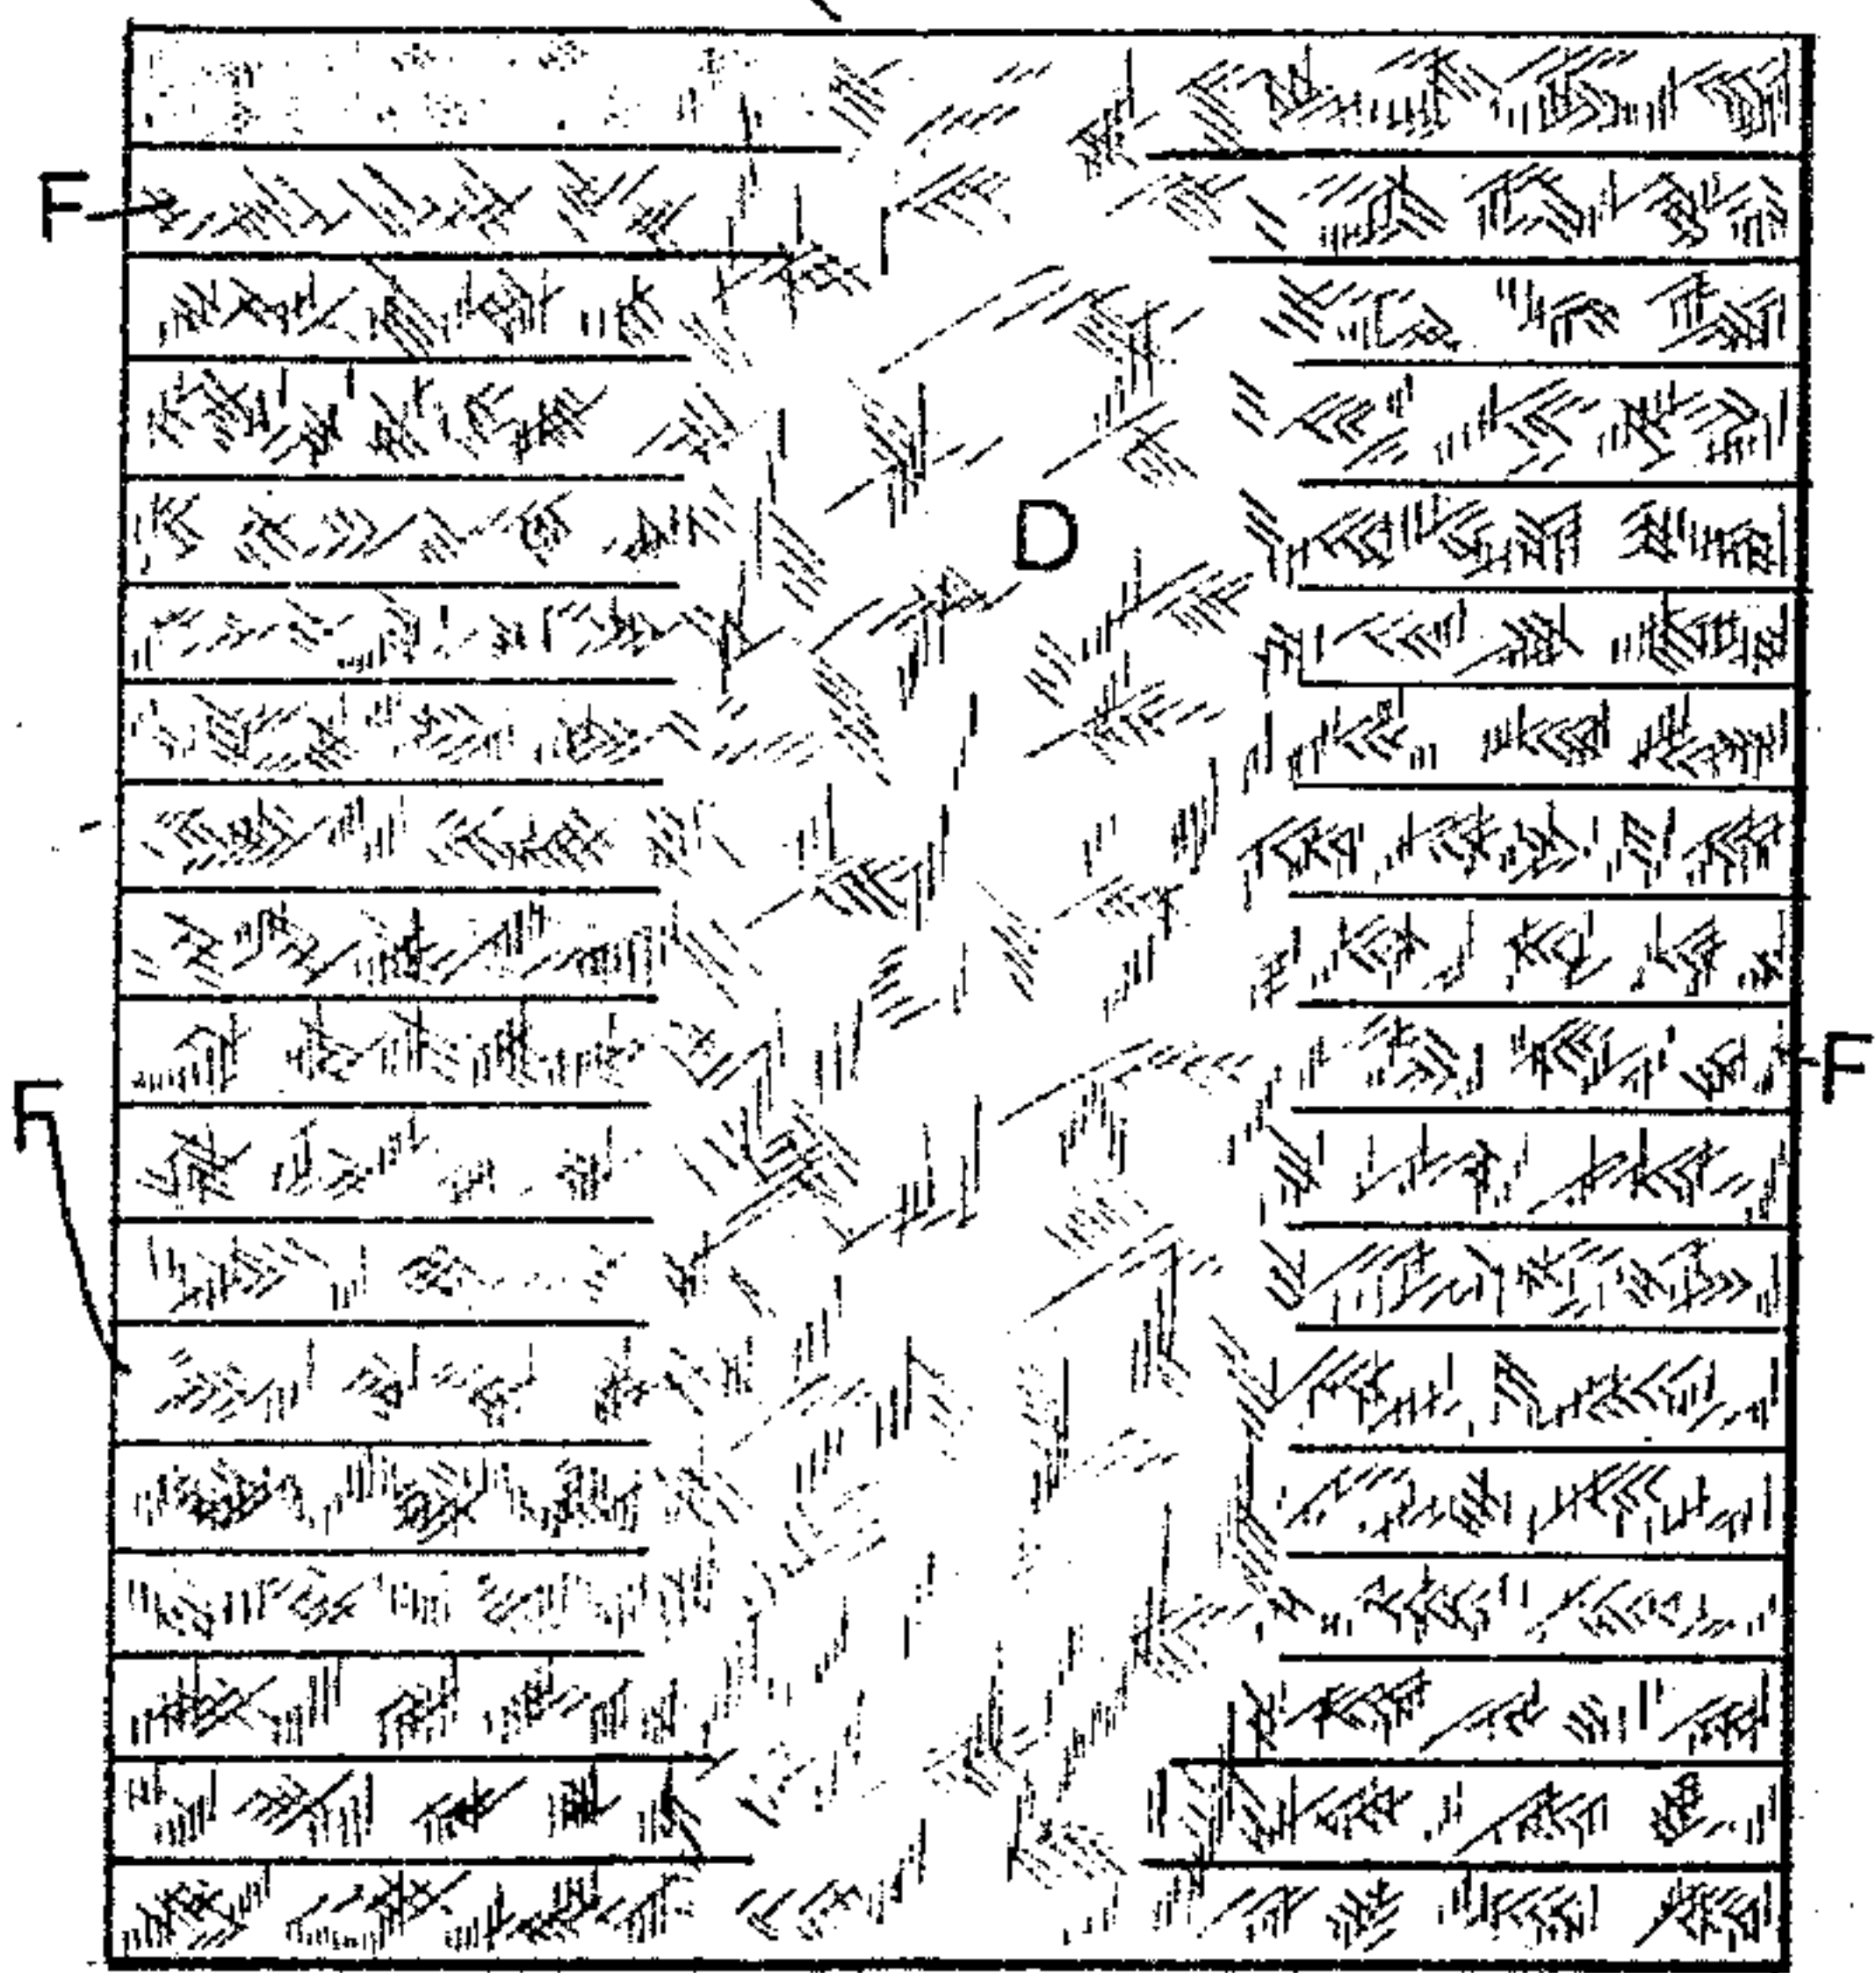 F
D
F
F